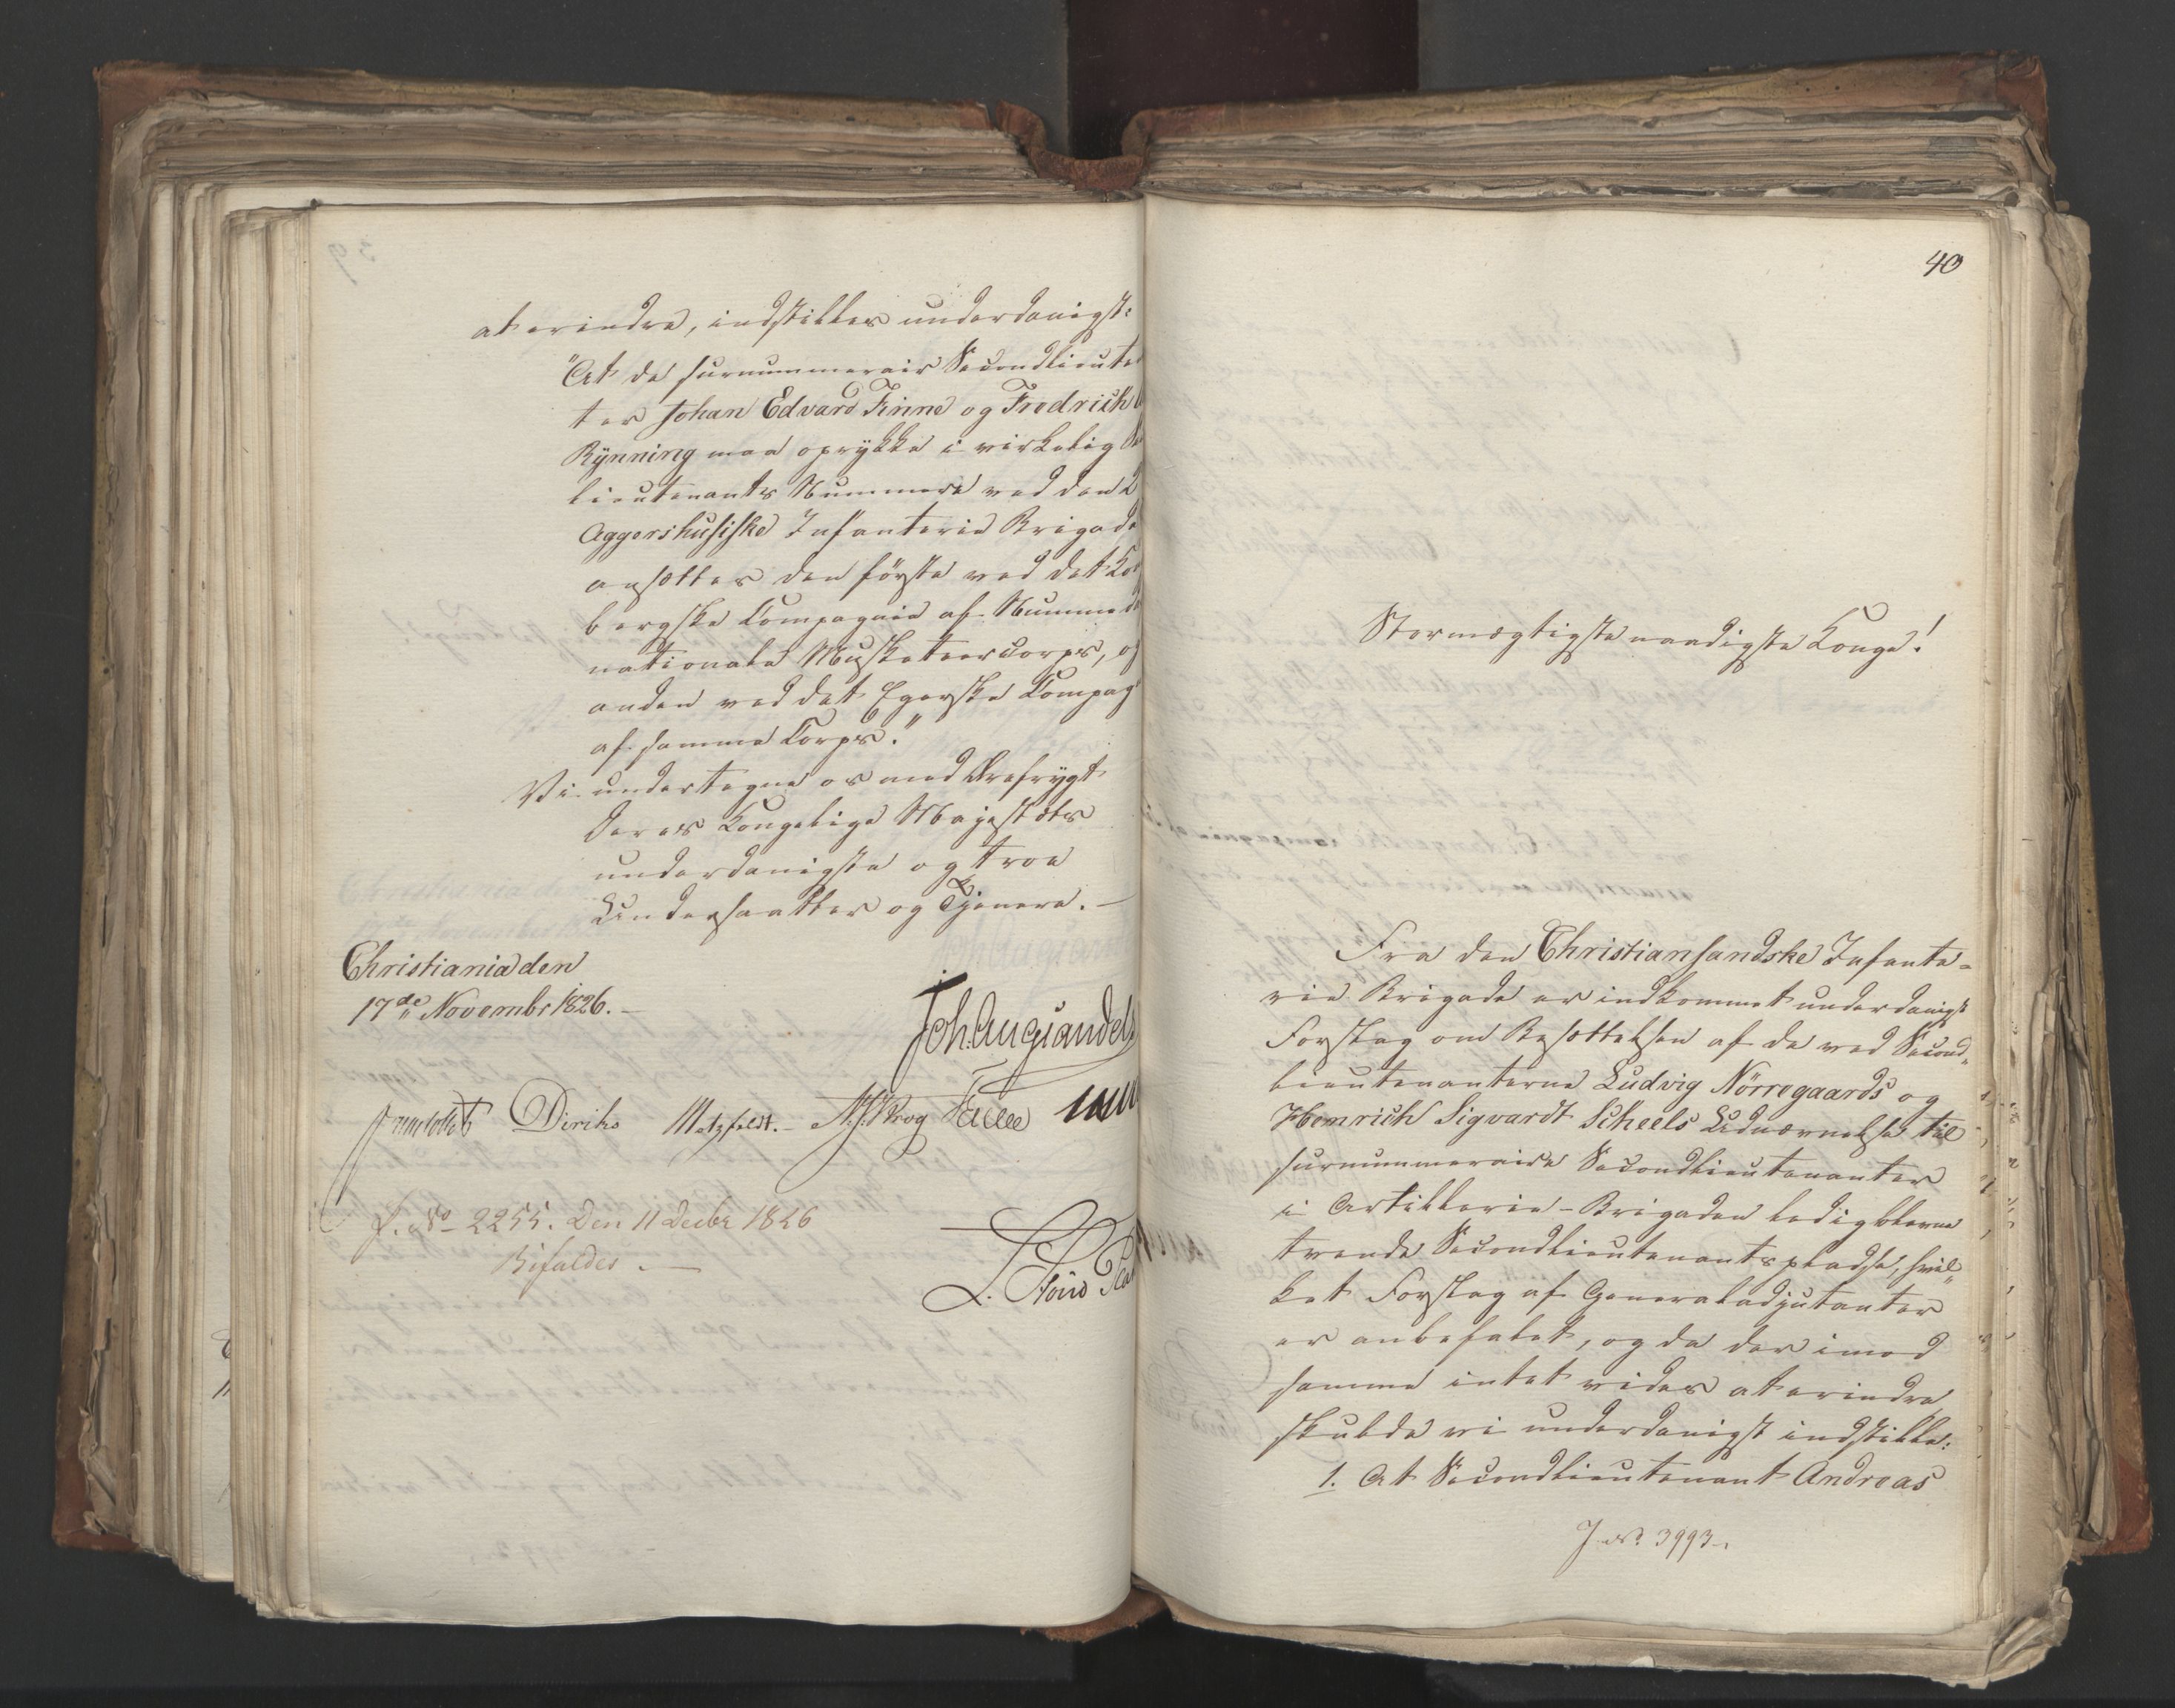 at erindre, indstilles underdanigst:
"At de surnummerair Secondlieute
ter Johan Edvard Finne og Fredrich
Rÿnning maa oprykke i virkelig
lieutenants Nummere ved den 2
Aggershusiske Infanterie Brigade
ansættes den første ved det Ko
bergske Compagnie af Nummeda
nationale Musketeercorps, og
anden ved det Egerske Compag
af samme Corps."
Vi undertegne os med Ærefrygt
Deres Kongelige Majestæts
underdanigste og troe
Undersaatter og Tjenere. –
Christiania den
17de Novembr 1826. –
Joh. Aug Sandels
Diriks Motzfeldt. – Krog Falle
L. No 2255. Den 11 Decbr 1826
Bifaldes. –
40
Stormægtigste naadigste Konge!
Fra den Christiansandske Infante-
rie Brigade er indkommet underdanigst
Forslag om Besættelsen af de ved Second-
lieutenanterne Ludvig Nörregaards og
Henrich Sigvardt Scheels Udnævnelse til
surnummeraire Secondlieutenanter
i Artillerie-Brigaden ledigblevne
trende Secondlieutenantspladse, hvil-
ket Forslag af Generaladjutanten
er anbefalet, og da der imod
samme intet vides at erindre,
skulde vi underdanigst indstille:
1. At Secondlieutenant Andreas
J. No 3993.